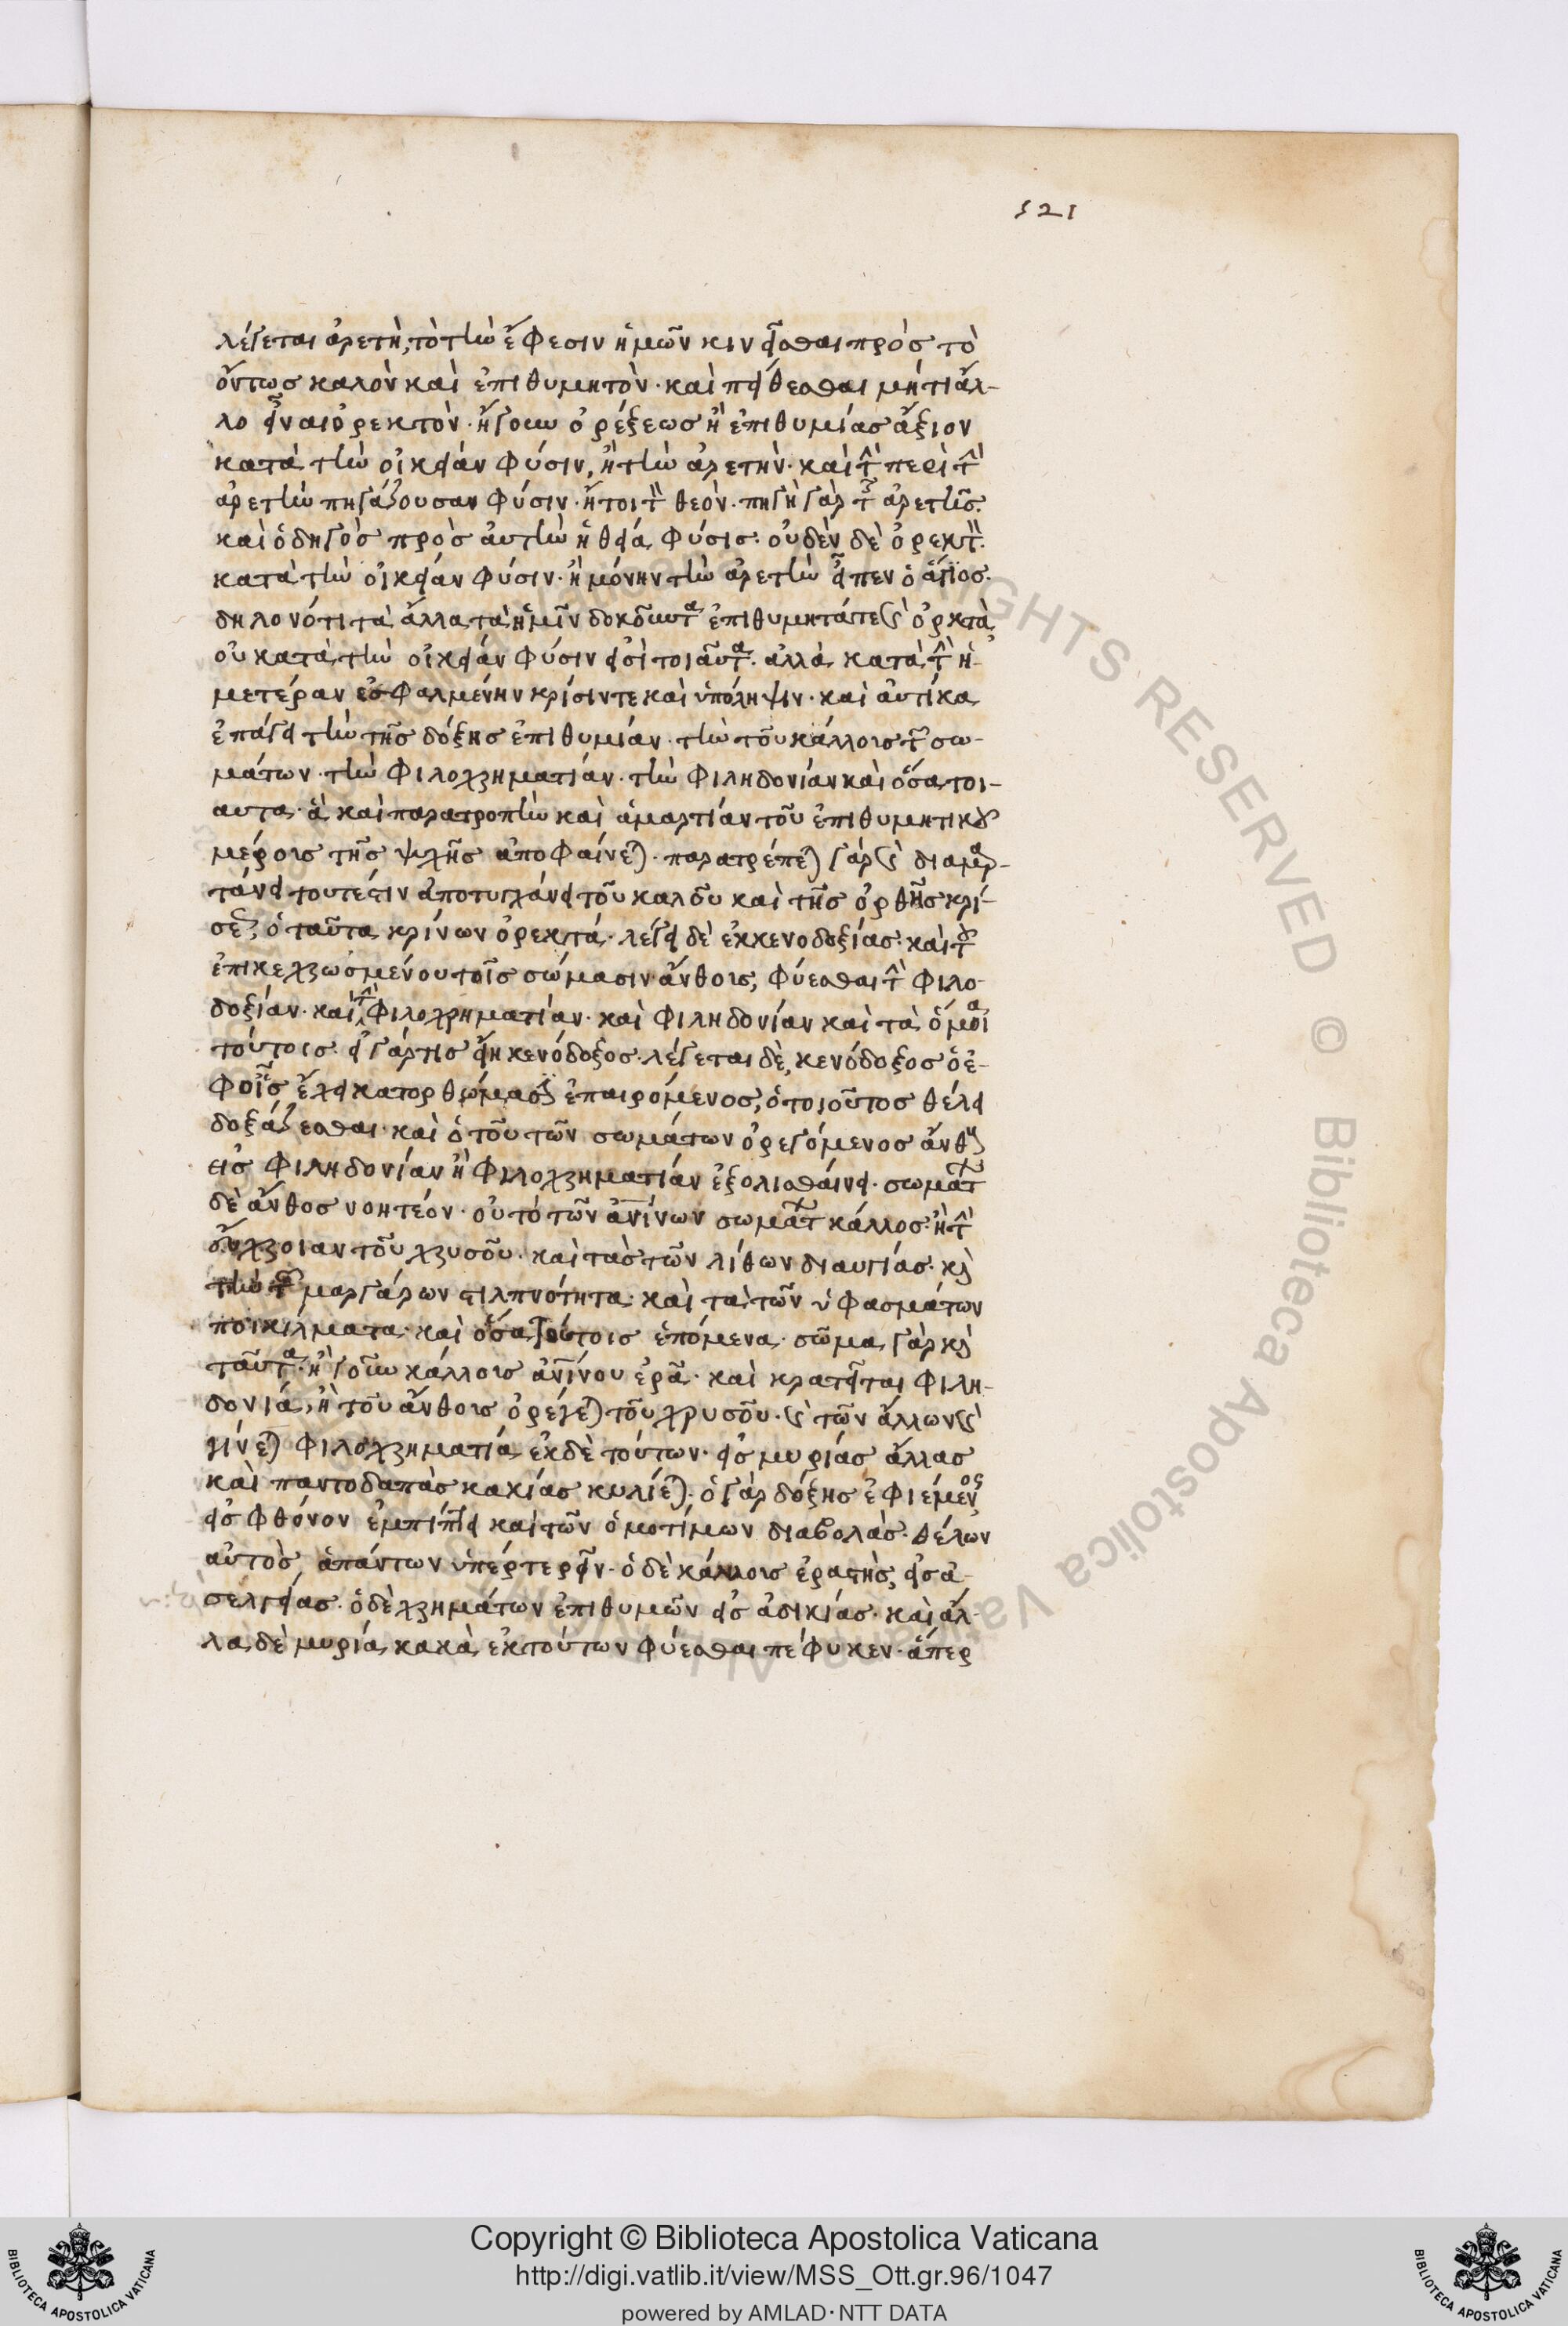 521
λέγεται ἀρετὴ, τὸ τὴν ἔφεσιν ἡμῶν κινεῖσθαι πρὸς τὸ
ὄντως καλὸν καὶ ἐπιθυμητὸν· καὶ πείθεσθαι μήτι ἄλ-
λο εἶναι ὀρεκτὸν· ἤγουν ὀρέξεως ἢ ἐπιθυμίας ἄξιον
κατὰ τὴν οἰκείαν φύσιν, ἢ τὴν ἀρετὴν· καὶ τὴν περὶ τὴν
ἀρετὴν πηγάζουσαν φύσιν· ἤτοι τὸν θεὸν· πηγὴ γὰρ τῆς ἀρετῆς·
καὶ ὁδηγὸς πρὸς ἀυτὴν ἡ θεία φύσις· οὐδὲν δὲ ὀρεκτὸν·
κατὰ τὴν οἰκείαν φύσιν· ἢ μόνην τὴν ἀρετὴν εἶπεν ὁ ἅγιος·
δηλονότι τὰ ἄλλα τὰ ἡμῖν δοκοῦντα ἐπιθυμητά τε καὶ ὀρκτὰ
οὐ κατὰ τὴν οἰκείαν φύσιν εἰσὶ τοιαῦτα· ἀλλὰ κατὰ τὴν ἡ-
μετέραν ἐσφαλμένην κρίσιν τε καὶ ὑπόληψιν· καὶ ἀυτίκα
ἐπάγει τὴν τῆς δόξης ἐπιθυμίαν· τὴν τοῦ κάλλους τῶν σω-
μάτων· τὴν φιλοχρηματίαν· τὴν φιληδονίαν καὶ ὅσα τοι-
αυτα· ἃ καὶ παρατροπὴν καὶ ἁμαρτίαν τοῦ ἐπιθυμητικοῦ
μέρους τῆς ψχῆς ἀποφαίνεται· παρατρέπεται γὰρ καὶ διαμαρ-
τάνει τουτέστιν ἀποτυγχάνει τοῦ καλοῦ καὶ τῆς ὀρθῆς κρί-
σεως, ὁ ταῦτα κρίνων ὀρεκτά· λέγει δὲ ἐκ κενοδοξίας· καὶ τοῦ
ἐπικεχρωσμένου τοῖς σώμασιν ἄνθους, φύεσθαι τὴν φιλο-
δοξίαν· καὶ τὴν φιλοχρηματίαν· καὶ φιληδονίαν καὶ τὰ ὅμοια
τούτοις· εἰ γάρ τις εἴη κενόδοξος· λέγεται δὲ, κενόδοξος ὁ ἐ-
φ οἷς ἔχει κατορθώμασιν ἐπαιρόμενος, ὁ τοιοῦτος θέλει
δοξάζεσθαι· καὶ ὁ τοῦ τῶν σωμάτων ὀρεγόμενος ἄνθους
εἰς φιληδονίαν ἢ φιλοχρηματίαν ἐξολισθαίνει· σωμάτων
δὲ ἄνθος νοητέον· οὐ τὸ τῶν ἀνίνων σωμάτων κάλλος· ἢ τὴν
ἔυχροιαν τοῦ χρυσοῦ· καὶ τὰς τῶν λίθων διαυγίας· καὶ
τὴν τῶν μαργάρων στιλπνότητα· καὶ τὰ τῶν ὑφασμάτων
ποικίλματα· καὶ ὅσα τούτοις ἑπόμενα· σῶμα γὰρ καὶ
ταῦτα· ἢ γοῦν κάλλους ἀνίνου ἐρᾶ· καὶ κρατεῖται φιλη-
δονιά, ἢ τοῦ ἄνθους ὀρέγεται τοῦ χρυσοῦ· καὶ τῶν ἄλλων καὶ
γίνεται φιλοχρηματία ἐκ δὲ τούτων· εἰς μυρίας ἄλλας
καὶ παντοδαπὰς κακίας κυλίεται· ὁ γὰρ δόξης ἐφιέμενος
εἰς φθόνον ἐμπίπτει καὶ τῶν ὁμοτίμων διαβολὰς· θέλων
αὐτὸς ἁπάντων ὑπέρτερεῖν· ὁ δὲ κάλλους ἐραστὴς, εἰς ἀ-
σελγείας· ὁ δὲ χρημάτων ἐπιθυμῶν εἰς ἀδικίας· καὶ ἄλ-
λα δὲ μυρία κακὰ ἐκ τούτων φύεσθαι πέφυκεν· ἅπερ
RIGHTS RESERVED © Biblioteca Apostolica Vaticana
Copyright © Biblioteca Apostolica Vaticana
http://digi.vatlib.it/view/MSS_Ott.gr.96/1047
powered by AMLAD·NTT DATA
BIBLIOTECA APOSTOLICA VATICANA
BIBLIOTECA APOSTOLICA VATICANA